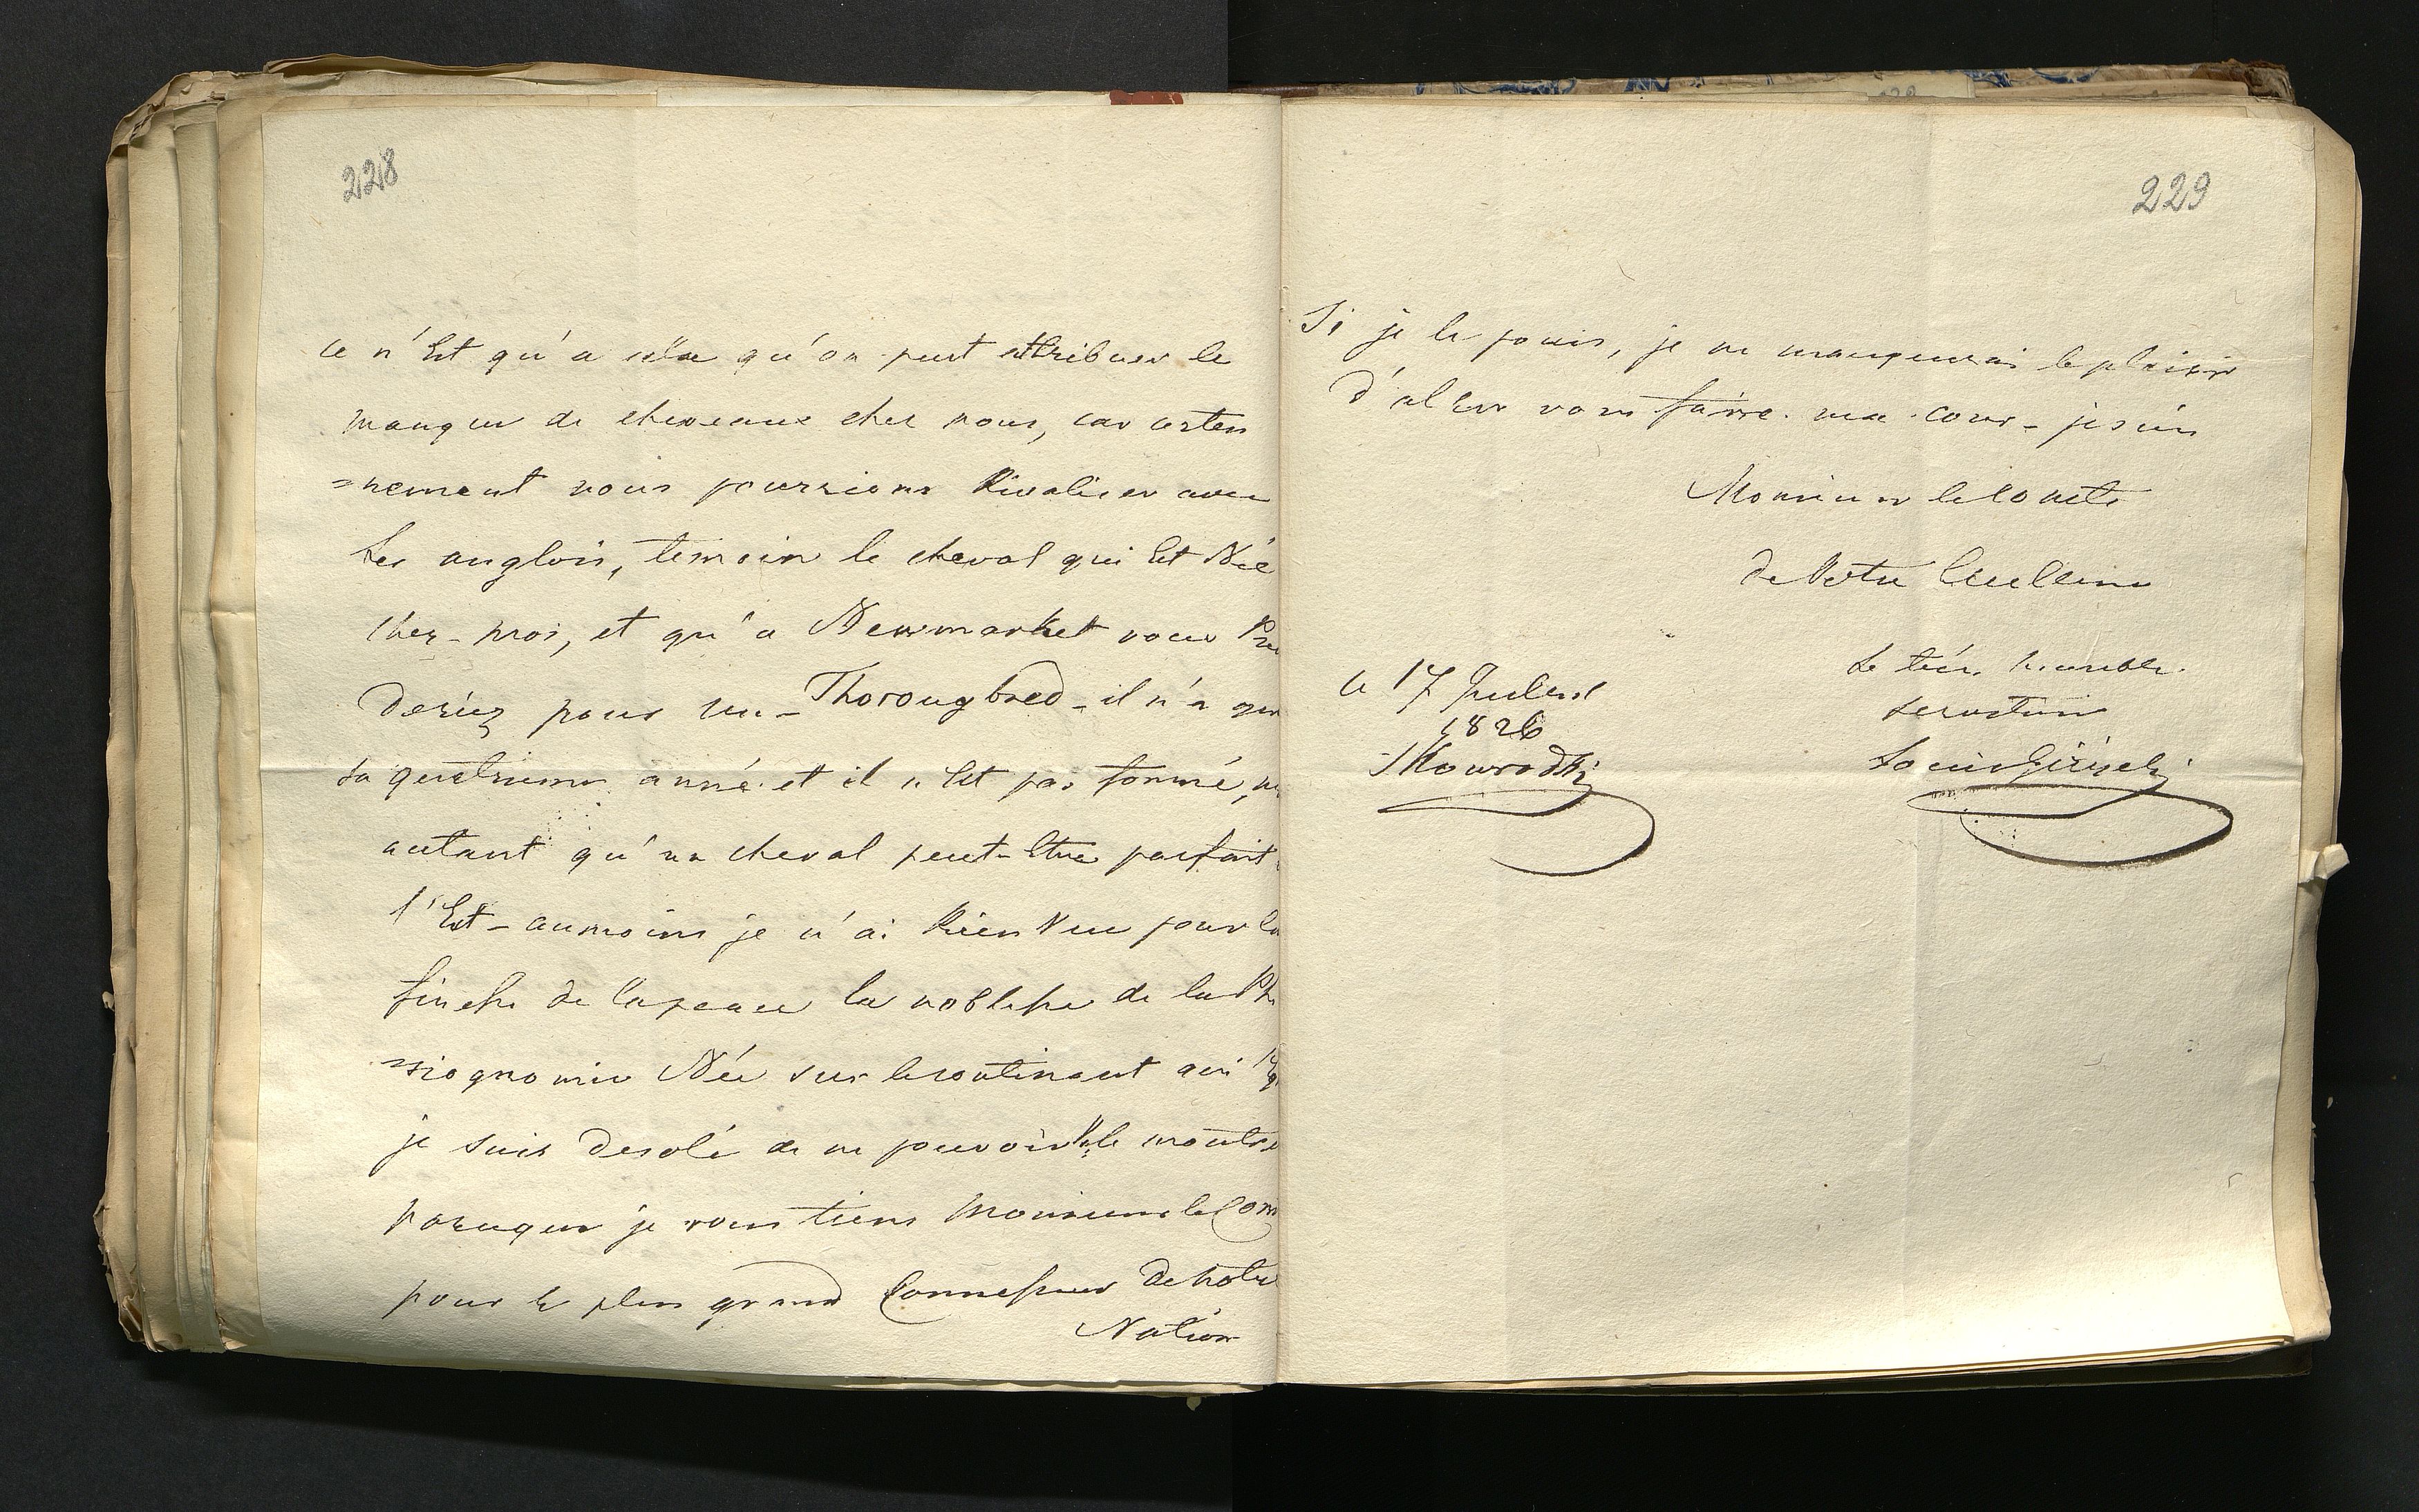 228
ce n'Est qu'a cela qu'on peut attribuer le
manque de cheveaux chez nous, car certen
=nement nous pourrions Rivaliser avec
Les anglois, temoin le cheval qui Est Née
chez-moi, et qu'a Newmarket vous Pren
deriez pour un-Thorougbred-il n'a que
sa quatrieme année et il n'Est pas formé,
autant qu'un cheval peut-Etre parfait
l'Est-aumoins je n'ai Rien Vue pour la
finesse de lapeau la noblesse de la Phi
=siognomie Née sur le continent qui
je suis desolé de ne pouvoir le montre
parceque je vous tiens Monsieur le Com
pour le plus grand Connesseur de notre
Nation
229
Si je le pouis, je ne manquerai le plaisir
d'aller vous faire ma cour-je suis
Monsieur le Comte
de Votre Excellence
Le très humble
serviteur
Louis
le 17 Juleul
1826